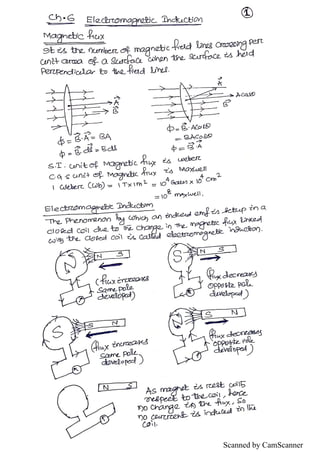 Ch.6 Electromagnetic Induction
①
Magnetic flux
It is the number of magnetic field lines crossing per
unit area of a surface when the surface is held
Perpendicular to the field lines.
A
B
A
A cosθ
B
ϕ = B⃗.A⃗ = BA
ϕ = B⃗.dS⃗ = BdS
ϕ = B.A cosθ
= BA cosθ
ϕ = B⃗.A⃗
S.I. unit of Magnetic flux is weber
C G S unit of Magnetic flux is Maxwell
1 Weber (Wb) = 1T×1m² = 10⁴ Gauss × 10⁴ cm²
= 10⁸ maxwell.
Electromagnetic Induction
The Phenomenon by which an induced emf is setup in a
closed coil due to the change in the magnetic flux linked
with the closed coil is called electromagnetic induction.
S N S
(flux increases
Same pole
developed)
N S
(flux decreases
opposite pole
developed)
S S N
(flux increases
Same pole
developed)
S N
(flux decreases
opposite pole
developed)
N S
As magnet is rest with
respect to the coil, hence
no change in the flux, so
no current is induced in the
coil.
Scanned by CamScanner